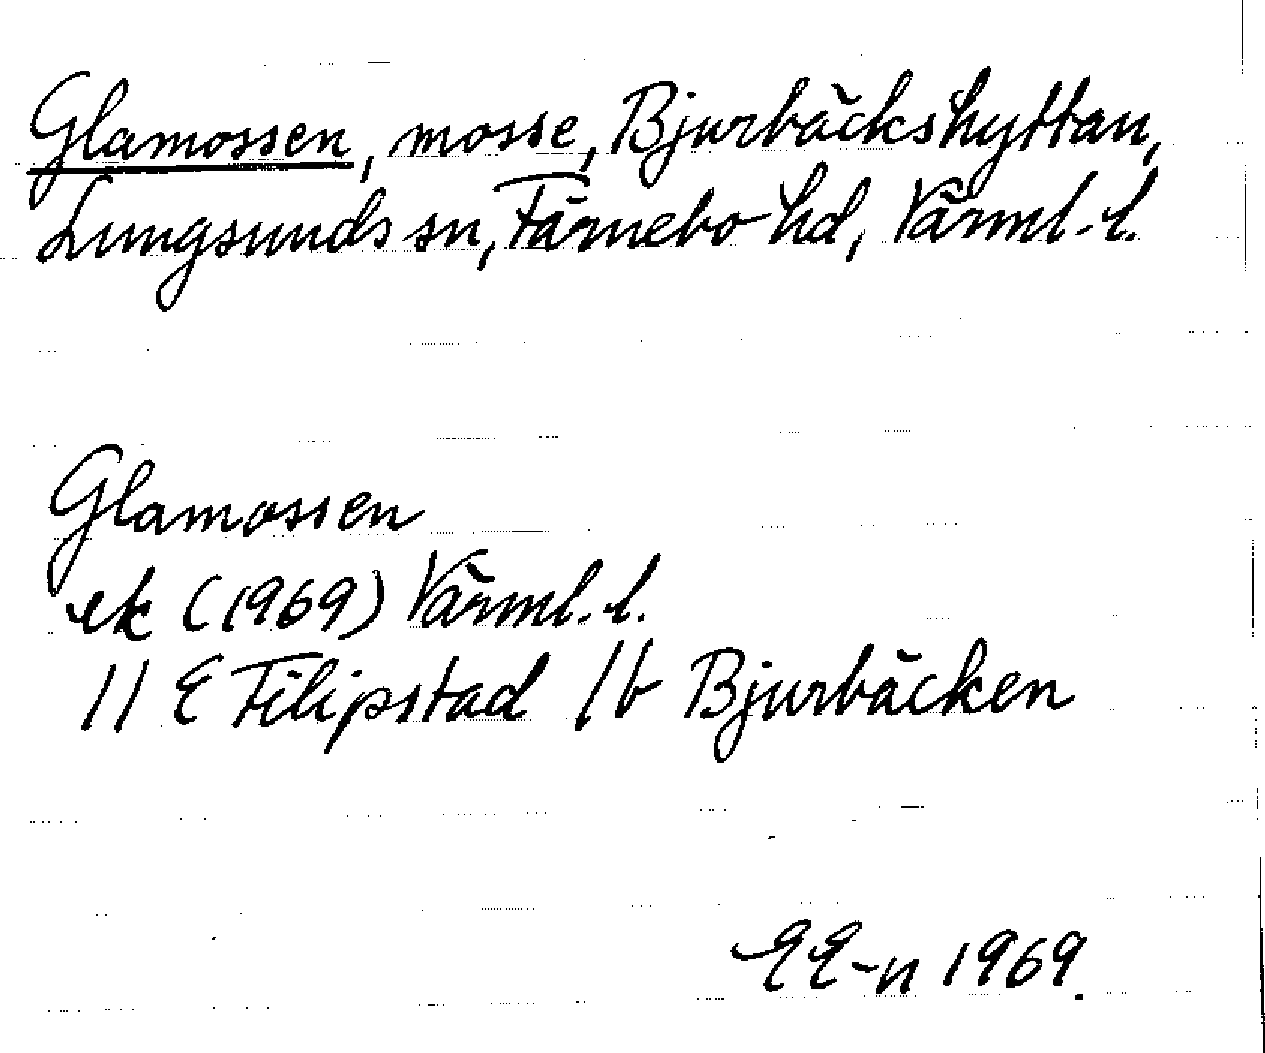 Glamossen, mosse, Bjurbäckshyttan,
Lungsunds sn, Färnebo hd, Värml. l.
Glamossen
ek (1969) Värml. l.
11 E Filipstad 1b Bjurbäcken
EE-n 1969.